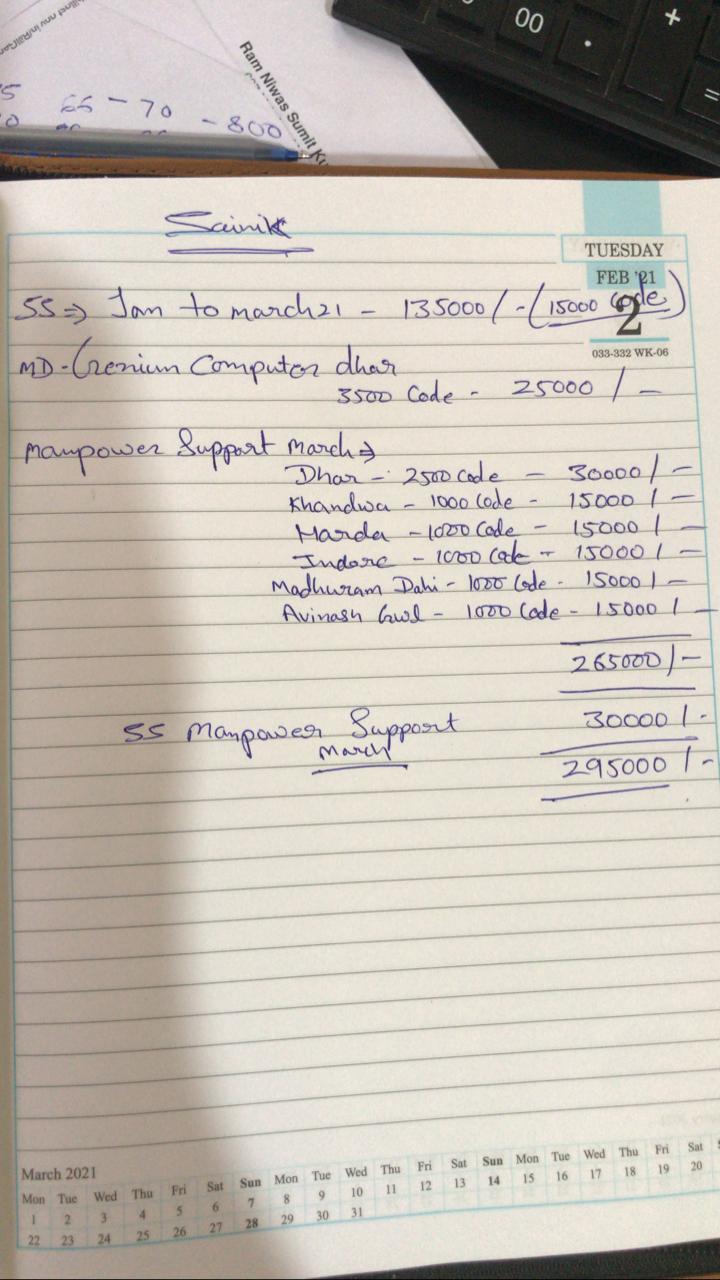 00
+
.
=
Ram Niwas Sumit Ku
66 - 70 - 800
Sainik
TUESDAY
FEB '21
2
033-332 WK-06
SS => Jan to march21 - 135000/- (15000 code)
MD - Genium Computer dhar
3500 Code - 25000/-
manpower Support march =>
Dhar - 2500 code - 30000/-
Khandwa - 1000 Code - 15000/-
Harda - 1000 Code - 15000/-
Indore - 1000 Code - 15000/-
Madhuram Dahi - 1000 Code - 15000/-
Avinash Gwl - 1000 Code - 15000/-
265000/-
SS Manpower Support 30000/-
March
295000/-
March 2021
Mon Tue Wed Thu Fri Sat Sun Mon Tue Wed Thu Fri Sat Sun Mon Tue Wed Thu Fri Sat
1 2 3 4 5 6 7 8 9 10 11 12 13 14 15 16 17 18 19 20
22 23 24 25 26 27 28 29 30 31